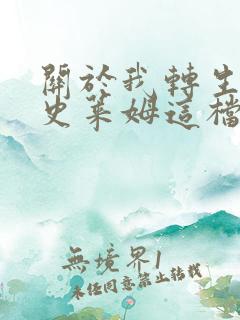 關於我轉生
史萊姆這檔
無境界1
未经同意禁止转载